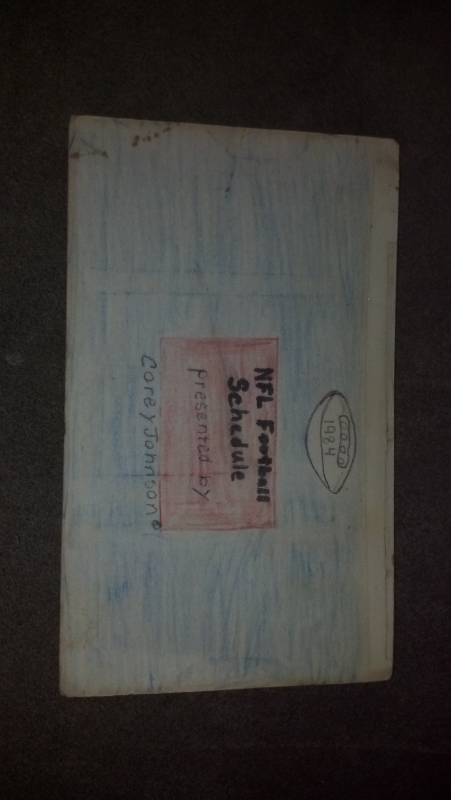 1984
NFL Football
Schedule
presented by
Corey Johnson